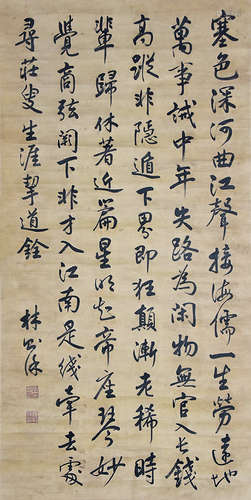 塞色深河曲江聲接海儒一生勞遠地
萬事誠中年失路為閑物無官入長錢
高蹤非隱遁下界即狂顛漸老稀時
輩歸休著近篇星明起帝座琴妙
覺商弦闕下非才入江南是綫牽去處
尋莊叟生涯挈道銓
林則徐